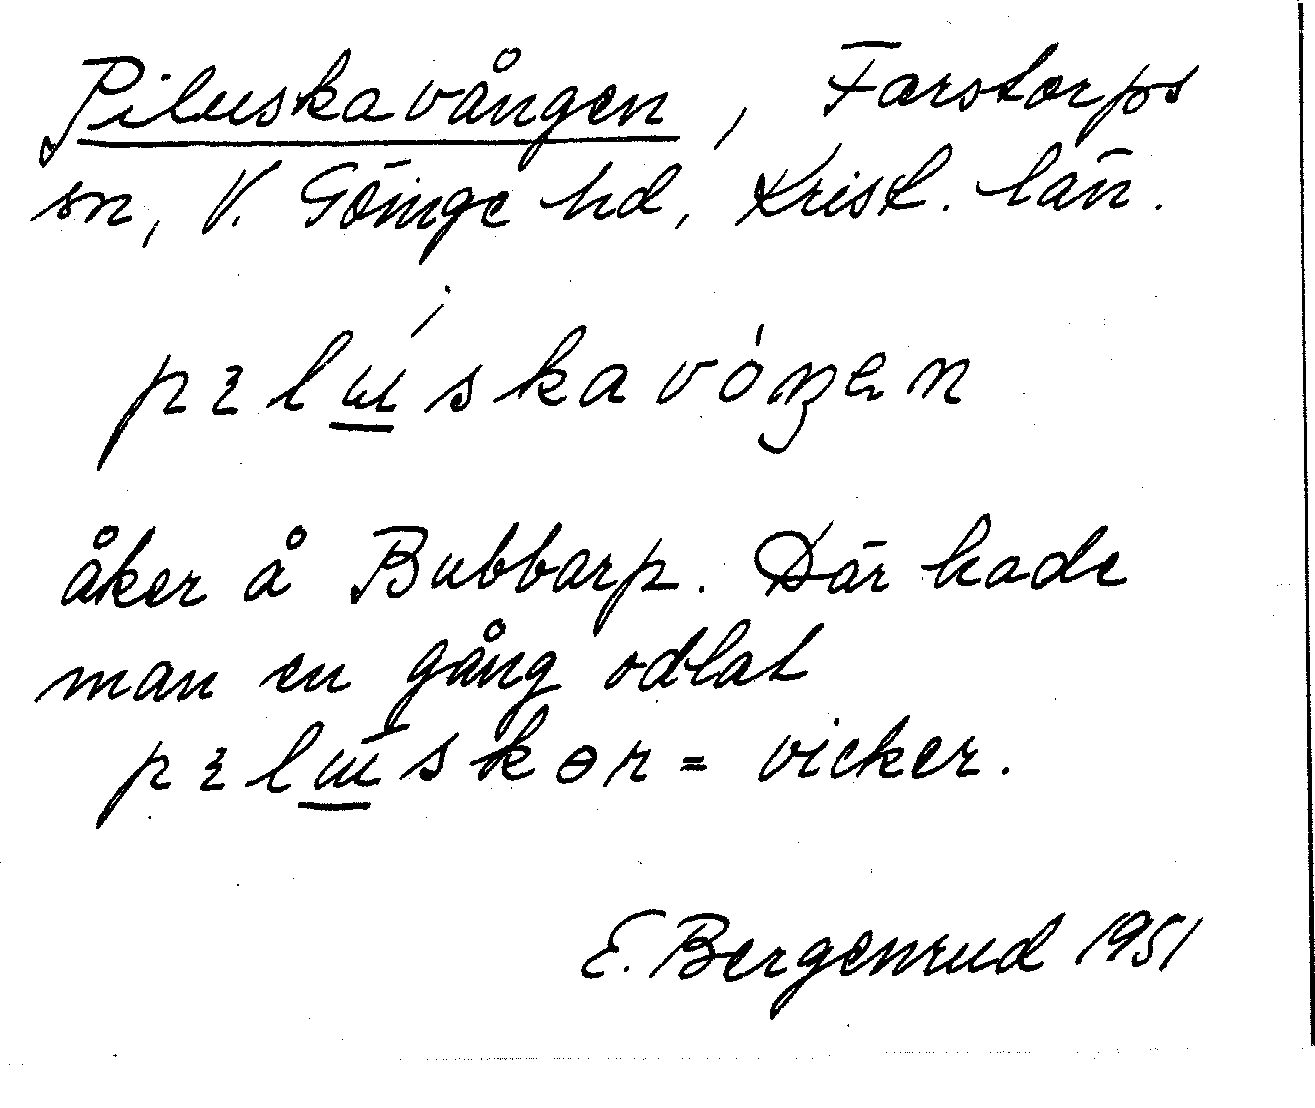 Piluskavången, Farstorps
sn, V. Göinge hd, Krist. län.
pɪlɯ́skavóŋen
åker å Bubbarp. Där hade
man en gång odlat
pɪlɯ́skər = vicker.
E. Bergenrud 1951